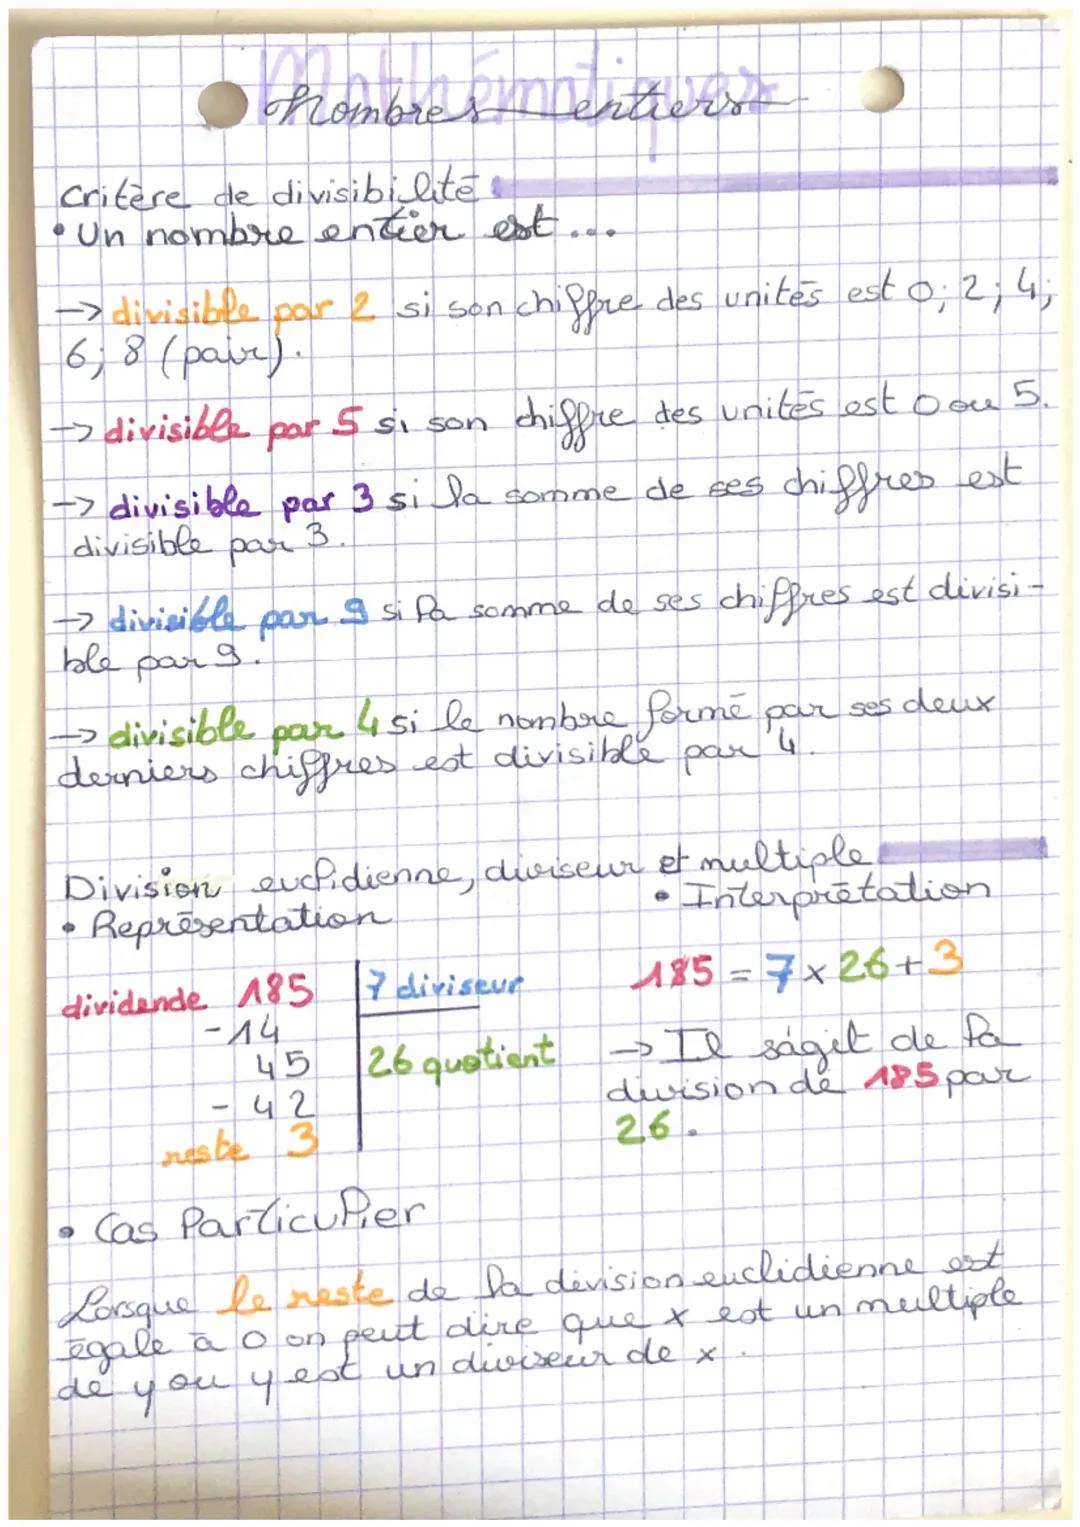 Mathématiques
Nombres entiers
Critère de divisibilité
• Un nombre entier est ...
→ divisible par 2 si son chiffre des unités est 0; 2; 4;
6; 8 (pair).
→ divisible par 5 si son chiffre des unités est 0 ou 5.
→ divisible par 3 si la somme de ses chiffres est
divisible par 3.
→ divisible par 9 si la somme de ses chiffres est divisi-
ble par 9.
→ divisible par 4 si le nombre formé par ses deux
derniers chiffres est divisible par 4.
Division euclidienne, diviseur et multiple
• Représentation
• Interprétation
dividende 185
7 diviseur
-14
45
26 quotient
- 42
reste 3
185 = 7 x 26 + 3
→ Il s'agit de la
division de 185 par
26.
• Cas Particulier
Lorsque le reste de la division euclidienne est
égale à 0 on peut dire que x est un multiple
de y ou y est un diviseur de x.